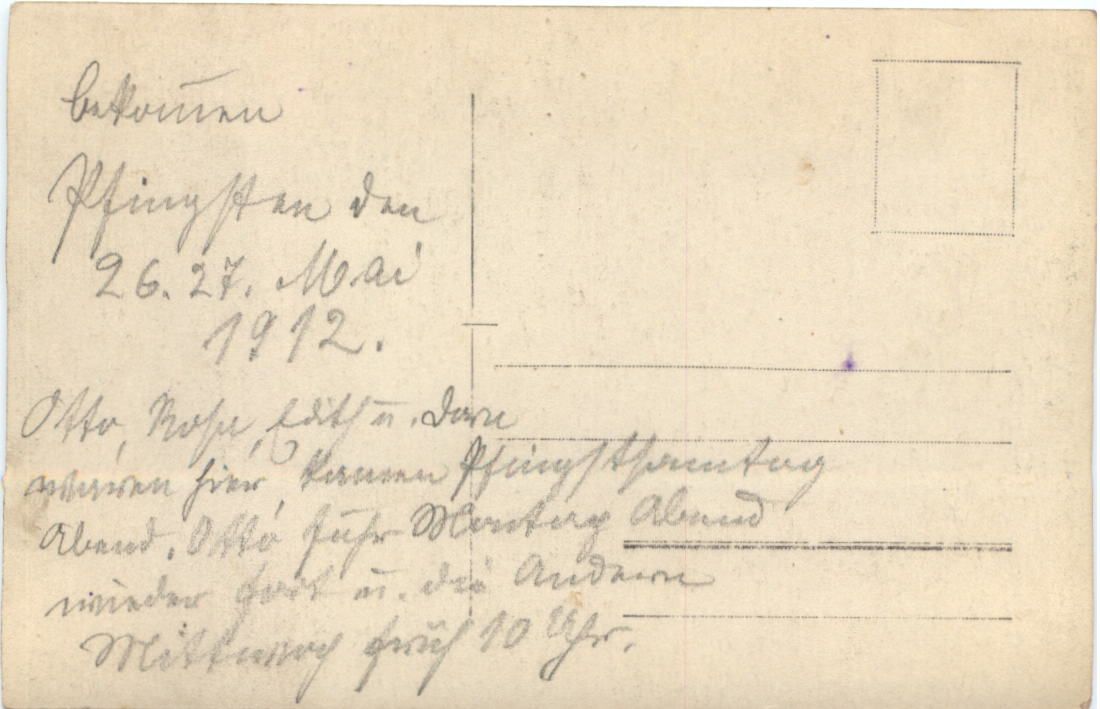 bekom̄en
Pfingsten den
26. 27. Mai
1912.
Otto, Rosa, Edith u. Dora
waren hier, kamen Pfingstsamtag
Abend. Otto fuhr Montag Abend
wieder fort u. die Andern
Mittwoch früh 10 Uhr.